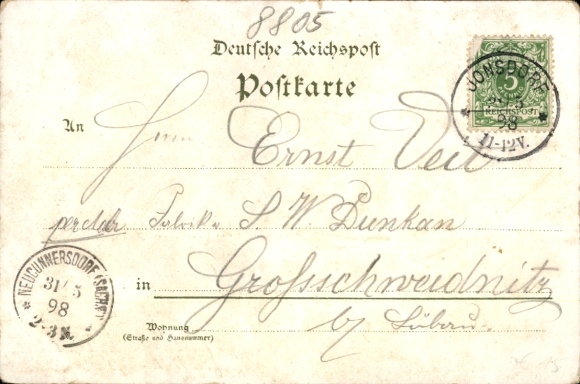 8805
Deutsche Reichspost
Postkarte
5
REICHSPOST
JONSDORF
31/5
98
11-12V.
An Herrn Ernst Veit
S. W. Dunkan
NEUCUNNERSDORF (SACHS)
31/5
98
2-3N.
in Grossschweidnitz
Wohnung
(Straße und Hausnummer)
by Löbau.